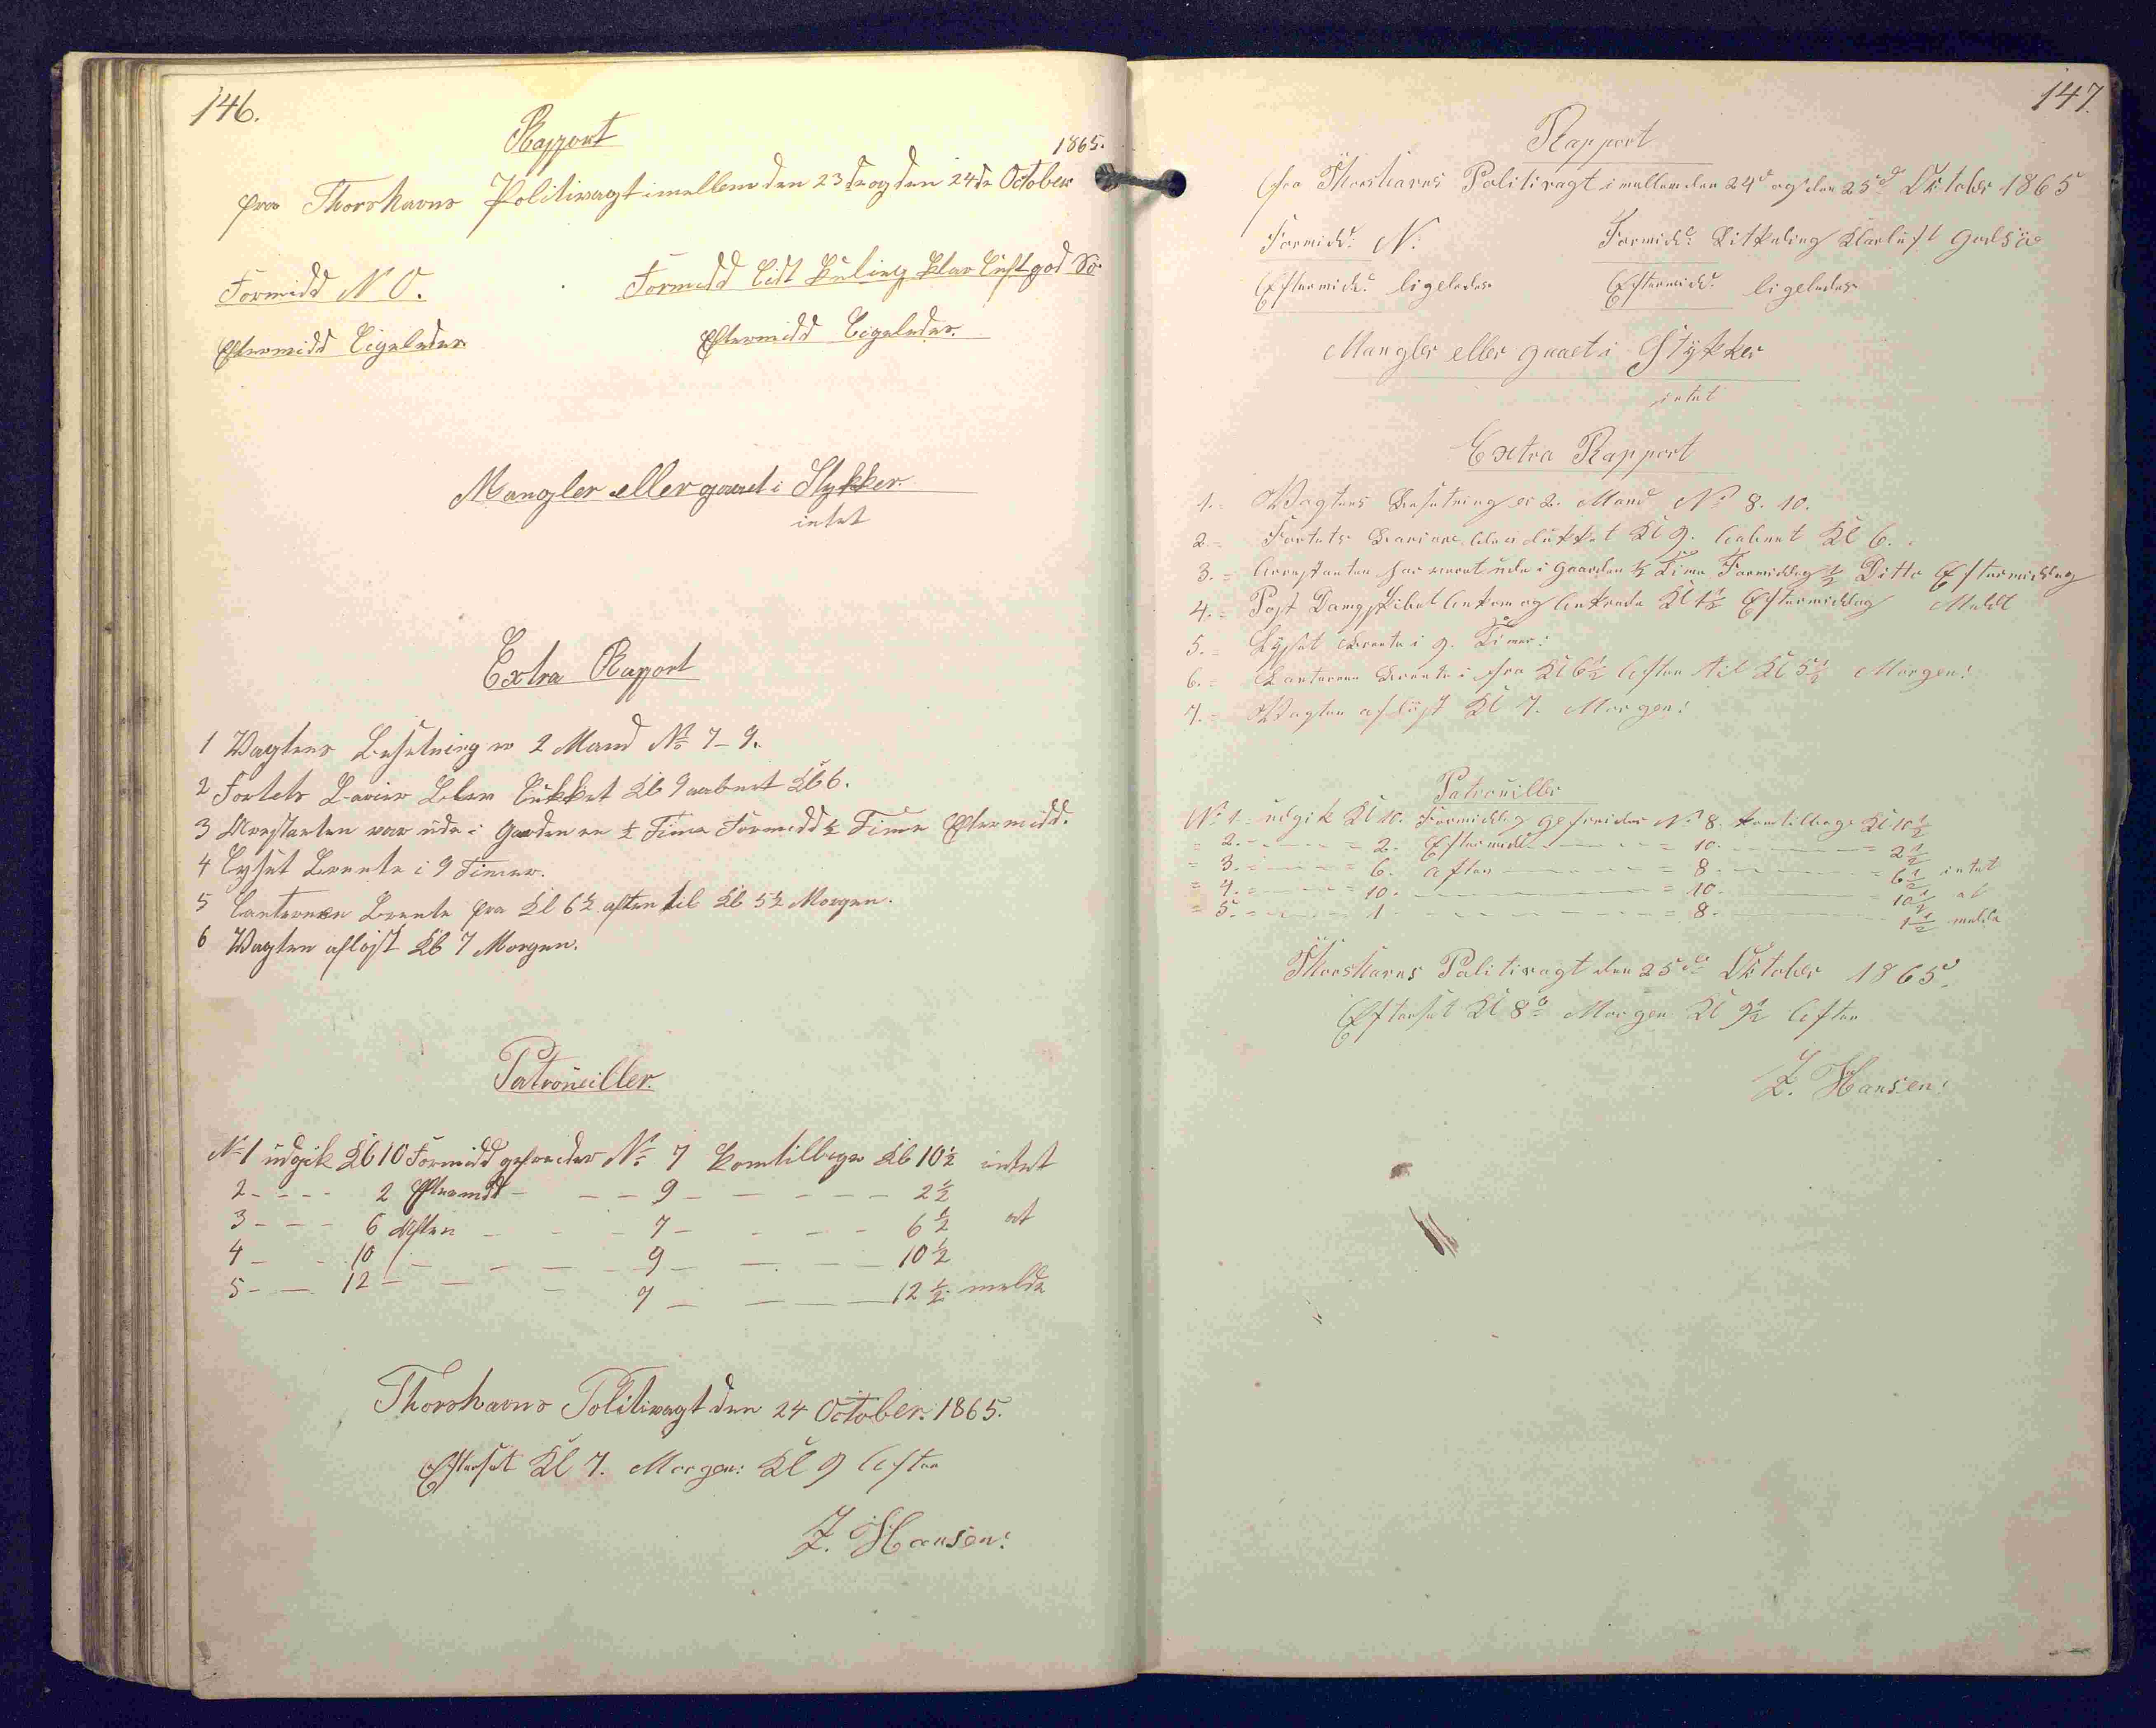 146.
Rapport
1865.
fra Thorshavns Politivagt imellem den 23de og den 24de October
Formidd N O.
Formidd Lidt Kuling klar Luft god Sö.
Eftermidd Ligeledes
Eftermidd Ligeledes.
Mangler eller gaaet i Stykker.
intet
Extra Rapport
1 Vagtens Besetning er 2 Mand No 7-9.
2 Fortets Barier blev lukket Kl 9 aabnet Kl 6.
3 Arestanten var ude i Gaarden en ½ Time Formidd ½ Time Eftermidd.
4 Lyset Brente i 9 Timer.
5 Lanternen Brente fra Kl 6½ aften til Kl 5½ Morgen.
6 Vagten aflöst Kl 7 Morgen.
Patrouiller.
No 1 udgik Kl 10 Formidd gefreider No 7 kom tilbage Kl 10½ intet
2 - - - - 2 Eftermidd - - - 9 - - - - - 2½
3 - - - 6 Aften - - - 7 - - - - 6½ at
4 - - 10 - - - - - 9 - - - - 10½
5 - - 12 - - - 7 - - - - 12½ melde
Thorshavns Politivagt den 24 October 1865.
Efterset Kl 7. Morgen: Kl 9 Aften
J. Hansen:
147.
Rapport
fra Thorshavns Politivagt imellem den 24d og den 25d Oktober 1865
Formidd: N:
Formidd: Lit Kuling Klarluft God Sö
Eftermidd: ligeledes
Eftermidd: ligeledes
Mangler eller gaaet i Stykker
intet
Extra Rapport
1. = Vagtens Besetning er 2. Mand No 8. 10.
2. = Fortets Bariere blev lukket Kl 9. aabnet Kl 6.
3. = Arrestanten har veret ude i Gaarden ½ Time Formiddag ½ Ditto Eftermiddag
4. = Post Dampskibet Ankom og Ankrede Kl 1½ Eftermiddag Meldt
5. = Lyset Brente i 9. Timer:
6. = Lanteren Brente i fra Kl 6½ Aften til Kl 5½ Morgen:
7. = Vagten aflöst Kl 7. Morgen:
Patrouiller
No 1. udgik Kl 10. Formiddag gefreider No 8. kom tilbage Kl 10½
= 2. - - - - = 2. Eftermidd - - - = 10. - - - - = 2½
= 3. - - - - = 6. Aften - - - - = 8. - - - - = 6½ intet
= 4. = - - - = 10. - - - - = 10. - - - - = 10½ at
= 5. = - - - 1. - - - - = 8. - - - - 1½ melde
Thorshavns Politivagt den 25de Oktober 1865.
Efterset Kl 8 Morgen Kl 9½ Aften
J. Hansen: